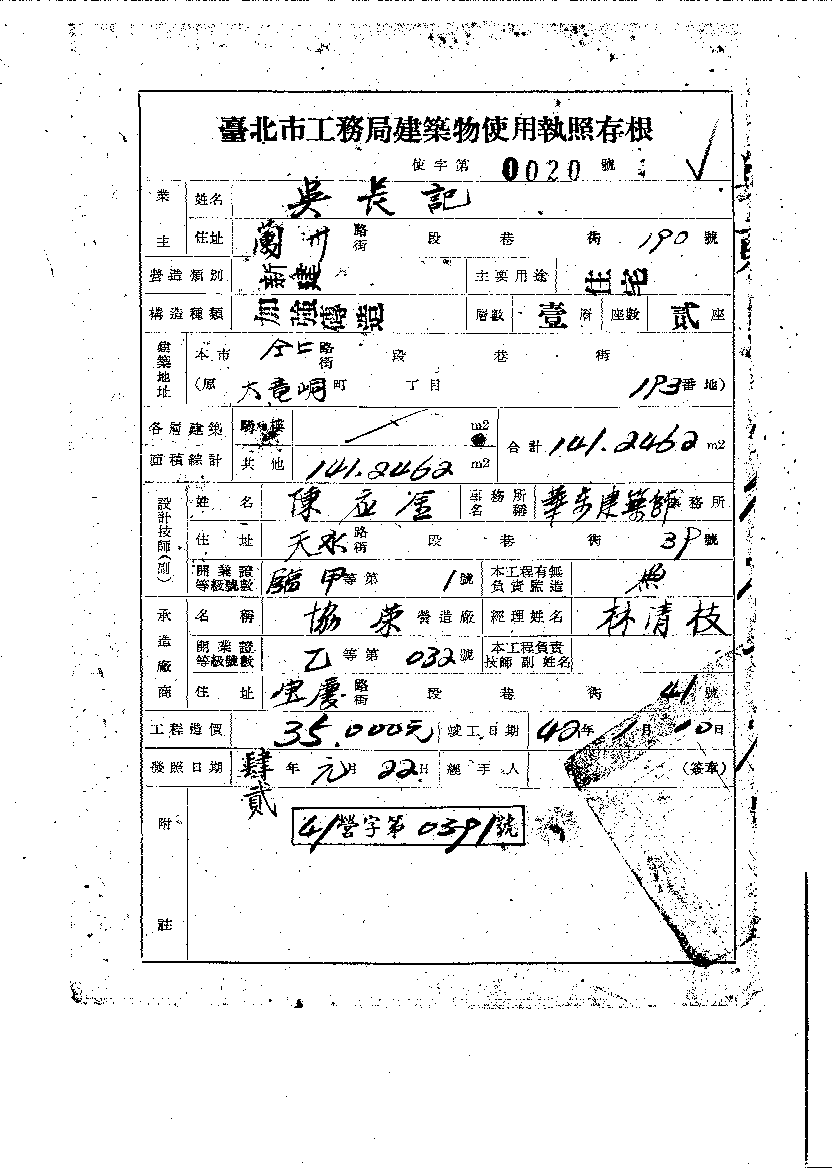 臺北市工務局建築物使用執照存根
使字第 0020 號
業主 姓名 吳長記
住址 蘭州 路街 段 巷 街 190 號
營造類別 新建 主要用途 住宅
構造種類 加強磚造 層數 壹 層 座數 貳 座
建築地址 本市 路街 段 巷 街
(原 大竜峒 町 丁目 193 番地)
各層建築面積總計 騎樓 m2 合計 141.2462 m2
其他 141.2462 m2
設計技師(副) 姓名 陳应 事務所名稱 建築師事務所
住址 天水 路街 段 巷 街 39 號
開業證等級號數 臨甲 等第 1 號 本工程有無負責監造 無
承造廠商 名稱 協榮 營造廠 經理姓名 林清枝
開業證等級號數 乙 等第 032 號 本工程負責技師副姓名
住址 宝慶 路街 段 巷 街 41 號
工程造價 35.000元 竣工日期 42年 1月 10日
發照日期 肆貳 年 元月 22日 經手人 (簽章)
附註 41營字第0391號